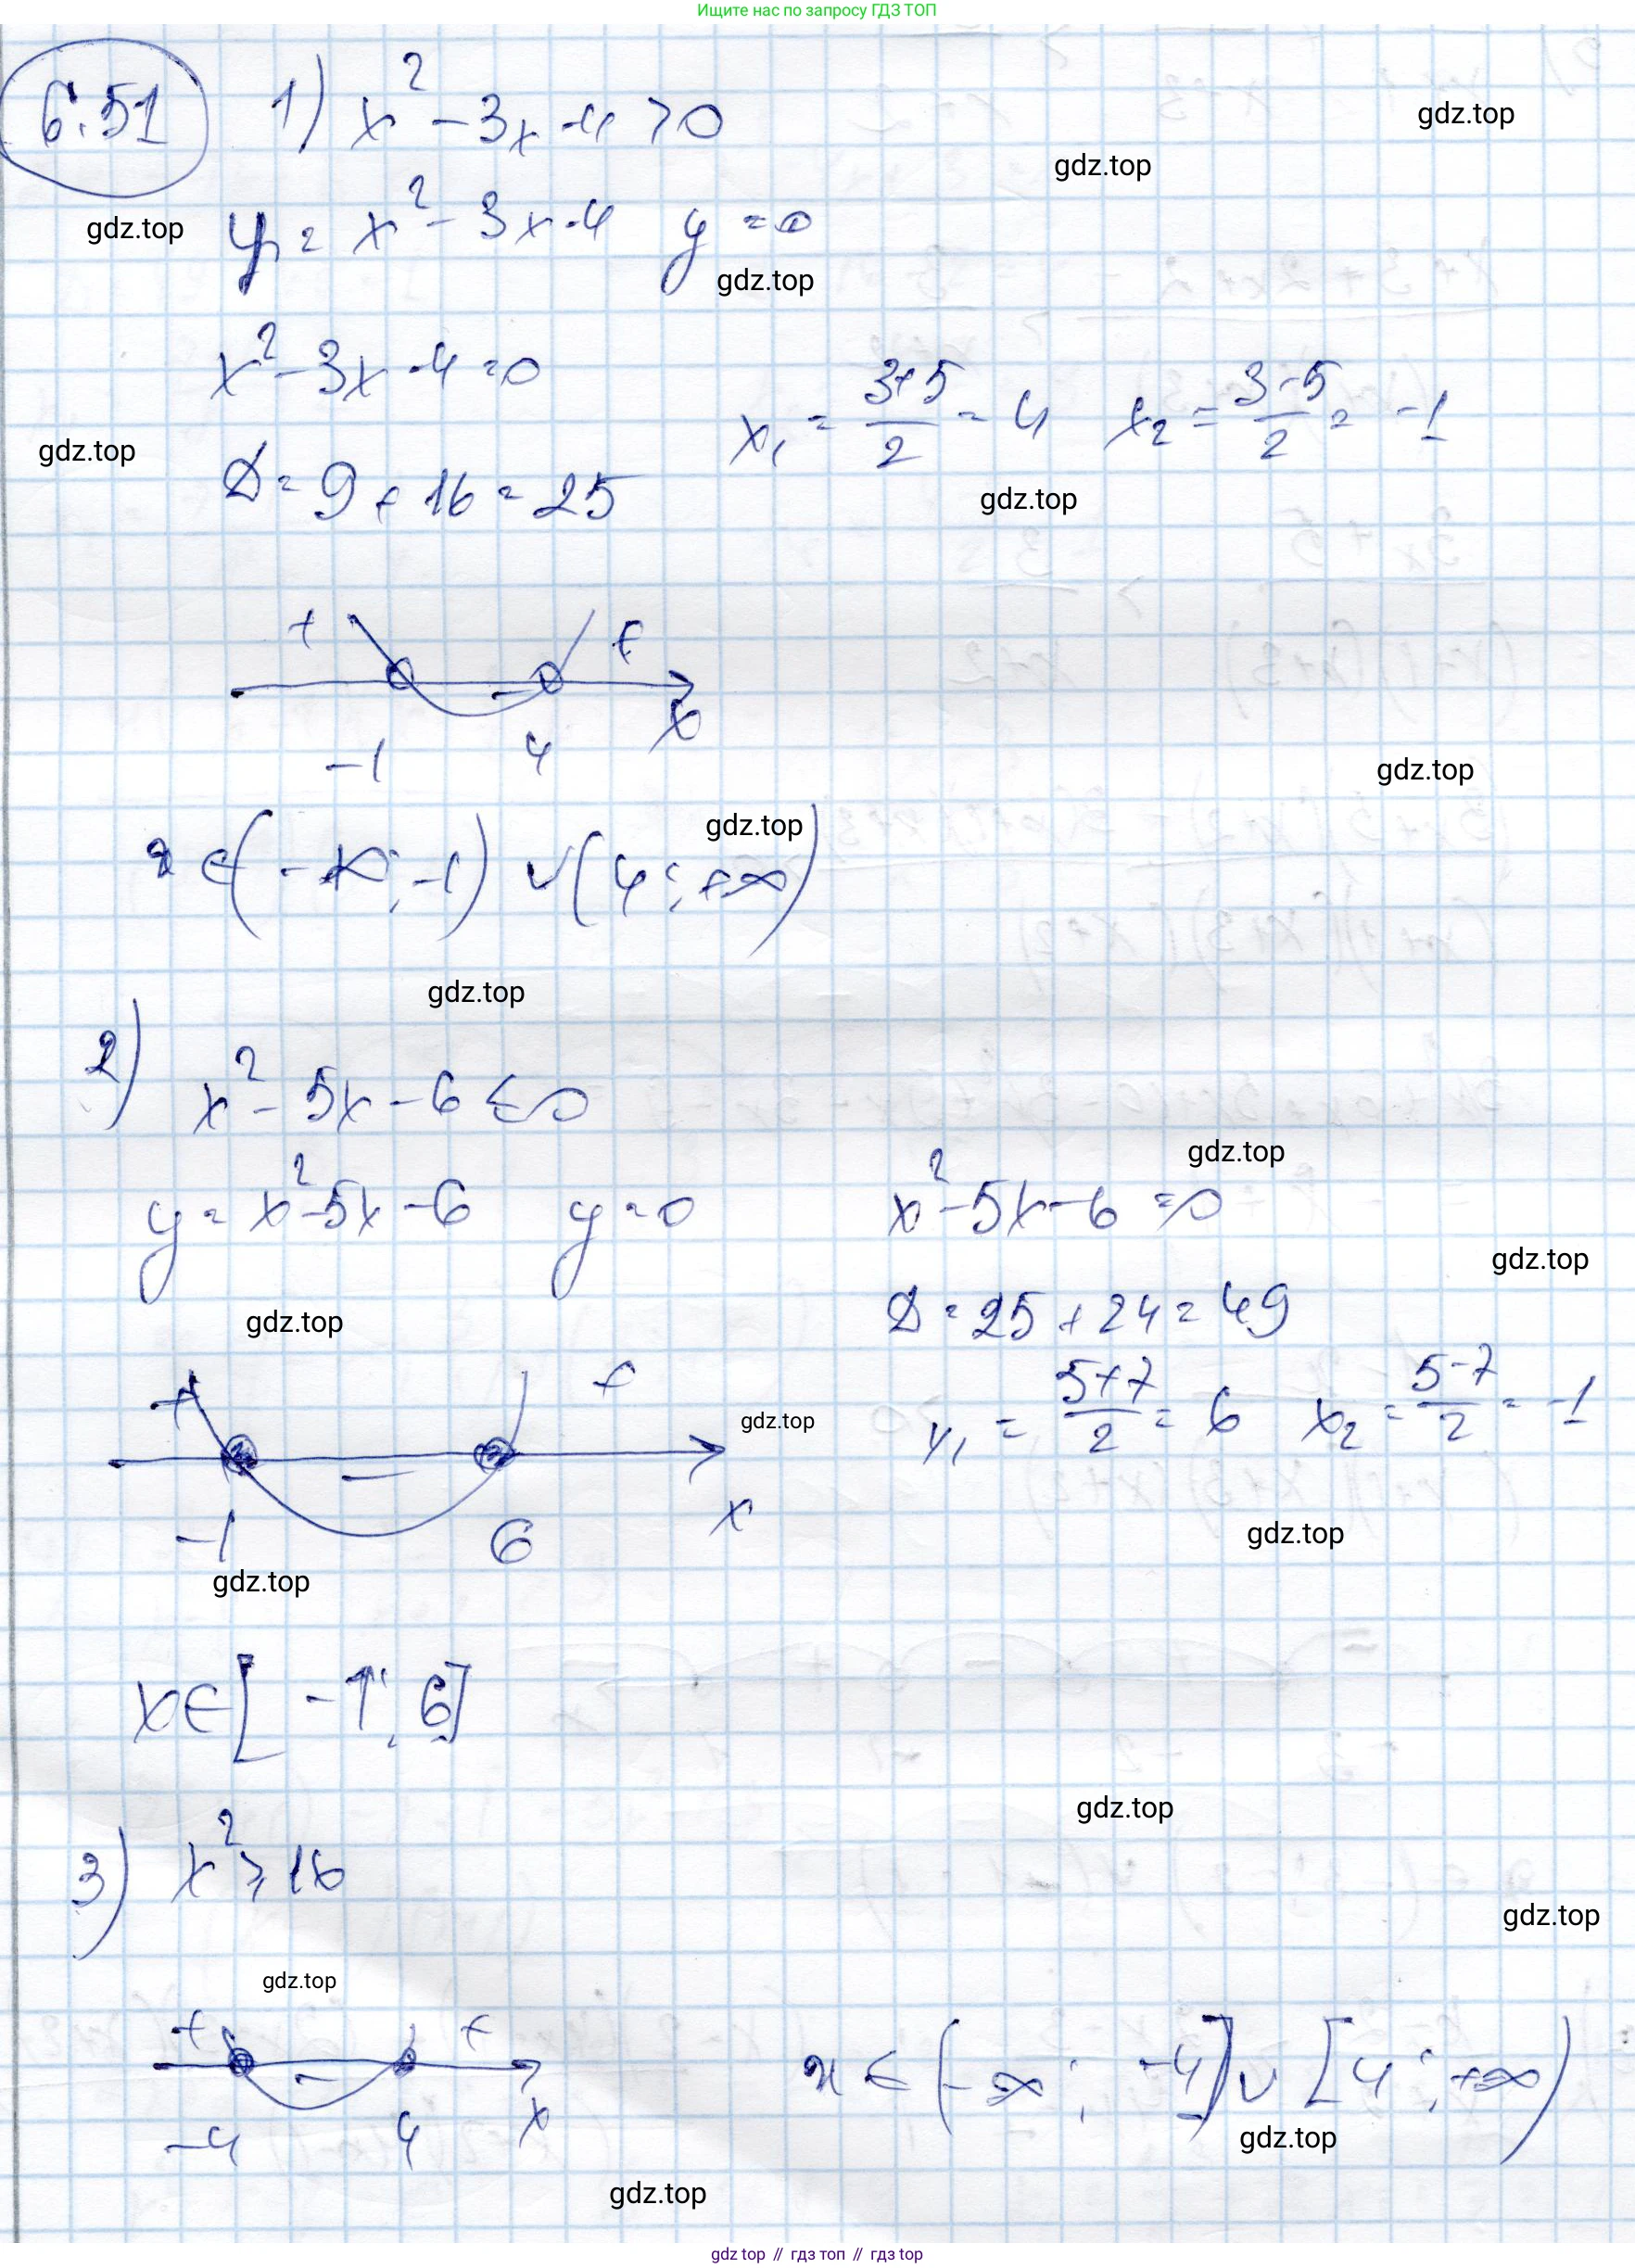 Ищите нас по запросу ГДЗ ТОП
6.51 1) x² - 3x - 4 > 0
gdz.top
gdz.top
gdz.top
y = x² - 3x - 4 y = 0
gdz.top
x² - 3x - 4 = 0
x₁ = (3+5)/2 = 4 x₂ = (3-5)/2 = -1
gdz.top
D = 9 + 16 = 25
gdz.top
+ - +
x
-1 4
gdz.top
gdz.top
x ∈ (-∞; -1) ∪ (4; +∞)
gdz.top
2) x² - 5x - 6 ≤ 0
gdz.top
y = x² - 5x - 6 y = 0 x² - 5x - 6 = 0
gdz.top
D = 25 + 24 = 49
gdz.top
+ - +
gdz.top
x₁ = (5+7)/2 = 6 x₂ = (5-7)/2 = -1
-1 6 x
gdz.top
gdz.top
x ∈ [-1; 6]
gdz.top
3) x² ≥ 16
gdz.top
gdz.top
+ - +
-4 4 x
x ∈ (-∞; -4] ∪ [4; +∞)
gdz.top
gdz.top
gdz top // гдз топ // гдз top